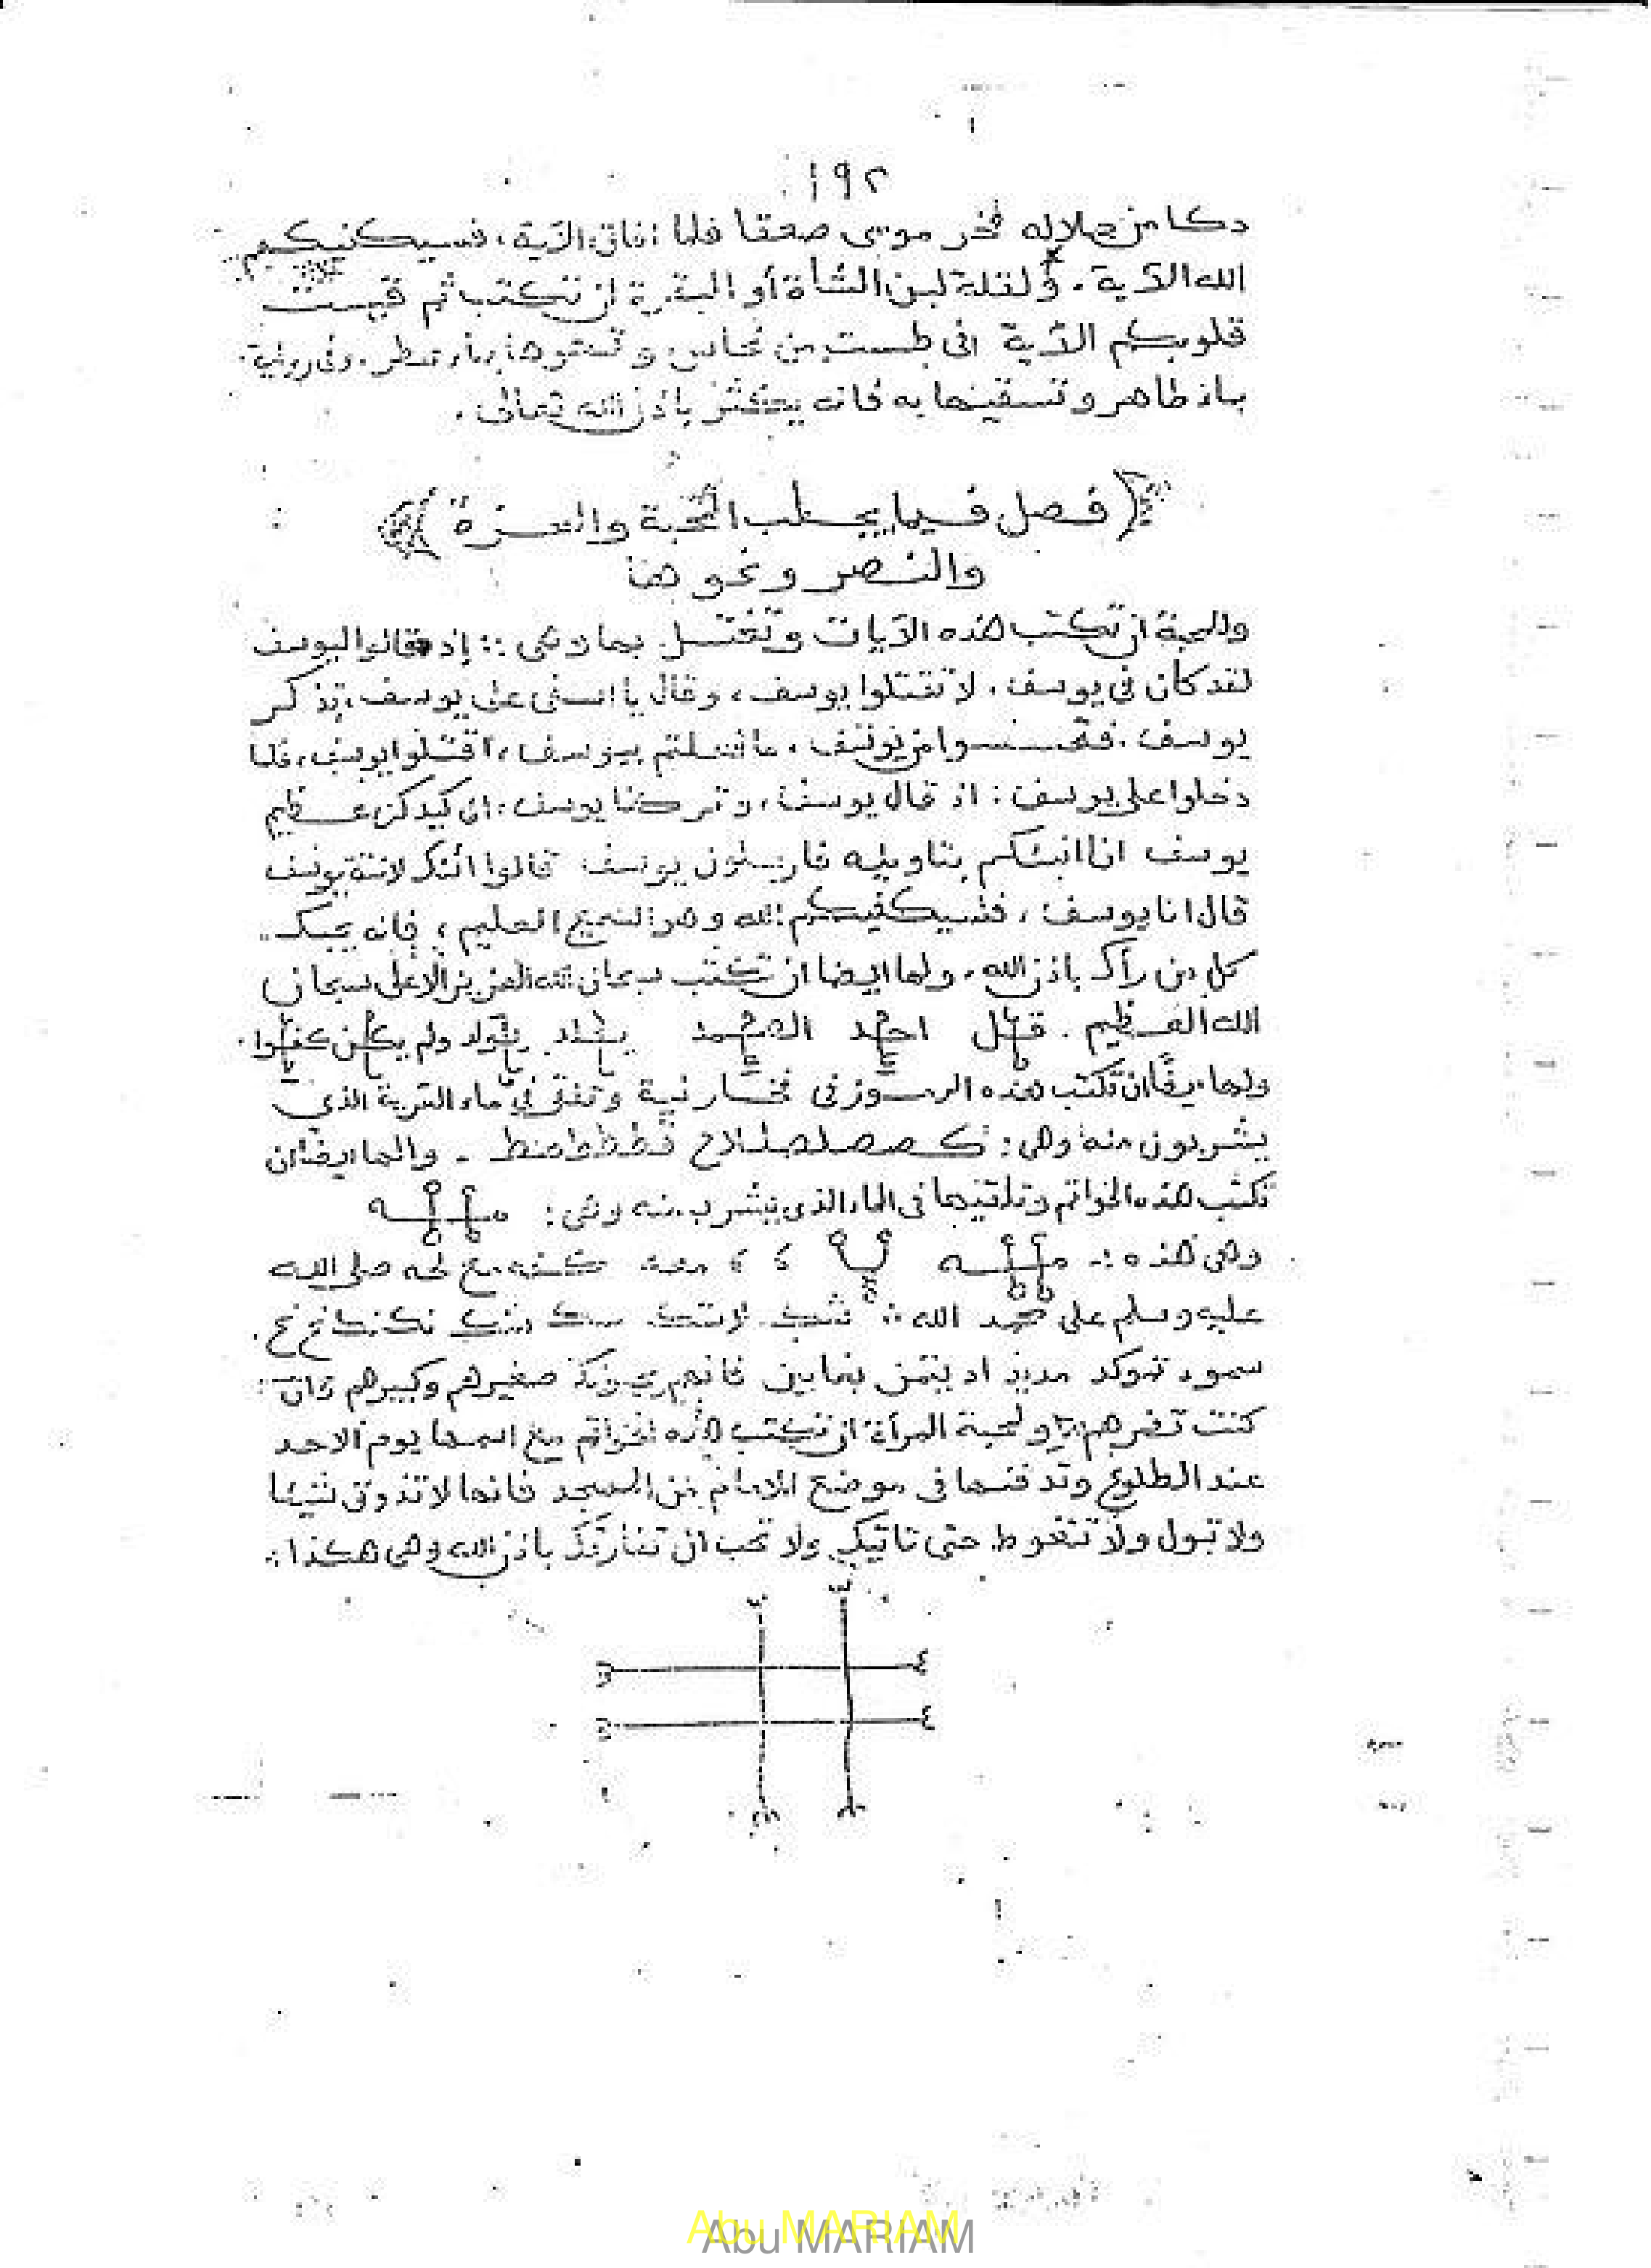 ١٩٢
دكا من جلاله فخر موسى صعقا فلما افاق الآية، فسيكفيكهم
الله الآية. ولقلة لبن الشأة أو البقرة ان تكتب ثم قست
قلوبكم الآية في طست من نحاس وتمحوها بماء مطر. وفي رواية
بماء طاهر وتسقيها به فانه يكثر باذن الله تعالى.
(فصل فيما يجلب المحبة والعزة)
والنصر ونحوها
وللمحبة ان تكتب هذه الآيات وتغتسل بها وهي :: إذ قالوا ليوسف
لقد كان في يوسف، لا تقتلوا يوسف، وقال يا اسفى على يوسف، تذكر
يوسف. فتحسسوا من يوسف، ما فعلتم بيوسف، اقتلوا يوسف، فلما
دخلوا على يوسف: اذ قال يوسف، وتركنا يوسف، ان كيدكن عظيم
يوسف انا انبئكم بتاويله فارسلون يوسف قالوا ائنك لانت يوسف
قال انا يوسف، فسيكفيكهم الله وهو السميع العليم، فانه يحبك
كل من رآك باذن الله. ولها ايضا ان تكتب سبحان الله العزيز الاعلى سبحان
الله العظيم. قل احد الصمد يلد يولد ولم يكن كفوا.
ولها ايضا ان تكتب هذه الرموز في فخار نية وتلقى في ماء القرية الذي
يشربون منه وهي: ولها ايضا ان
تكتب هذه الخواتم وتلقيها في الماء الذي يشرب منه وهي:
وهي هذه :. مع صلى الله
عليه وسلم على محمد الله
فانهم يحبونك صغيرهم وكبيرهم وان
كنت تضرهم ولمحبة المرأة ان تكتب هذه الخواتم مع اسمها يوم الاحد
عند الطلوع وتدفنها في موضع الامام من المسجد فانها لا تذوق شيئا
ولا تبول ولا تتغوط حتى تاتيك ولا تحب ان تفارقك باذن الله وهي هكذا :.
Abu MARIAM